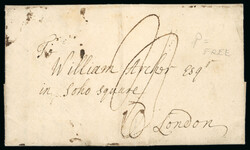 To
William Archer Esqr
in Soho square
London
FREE